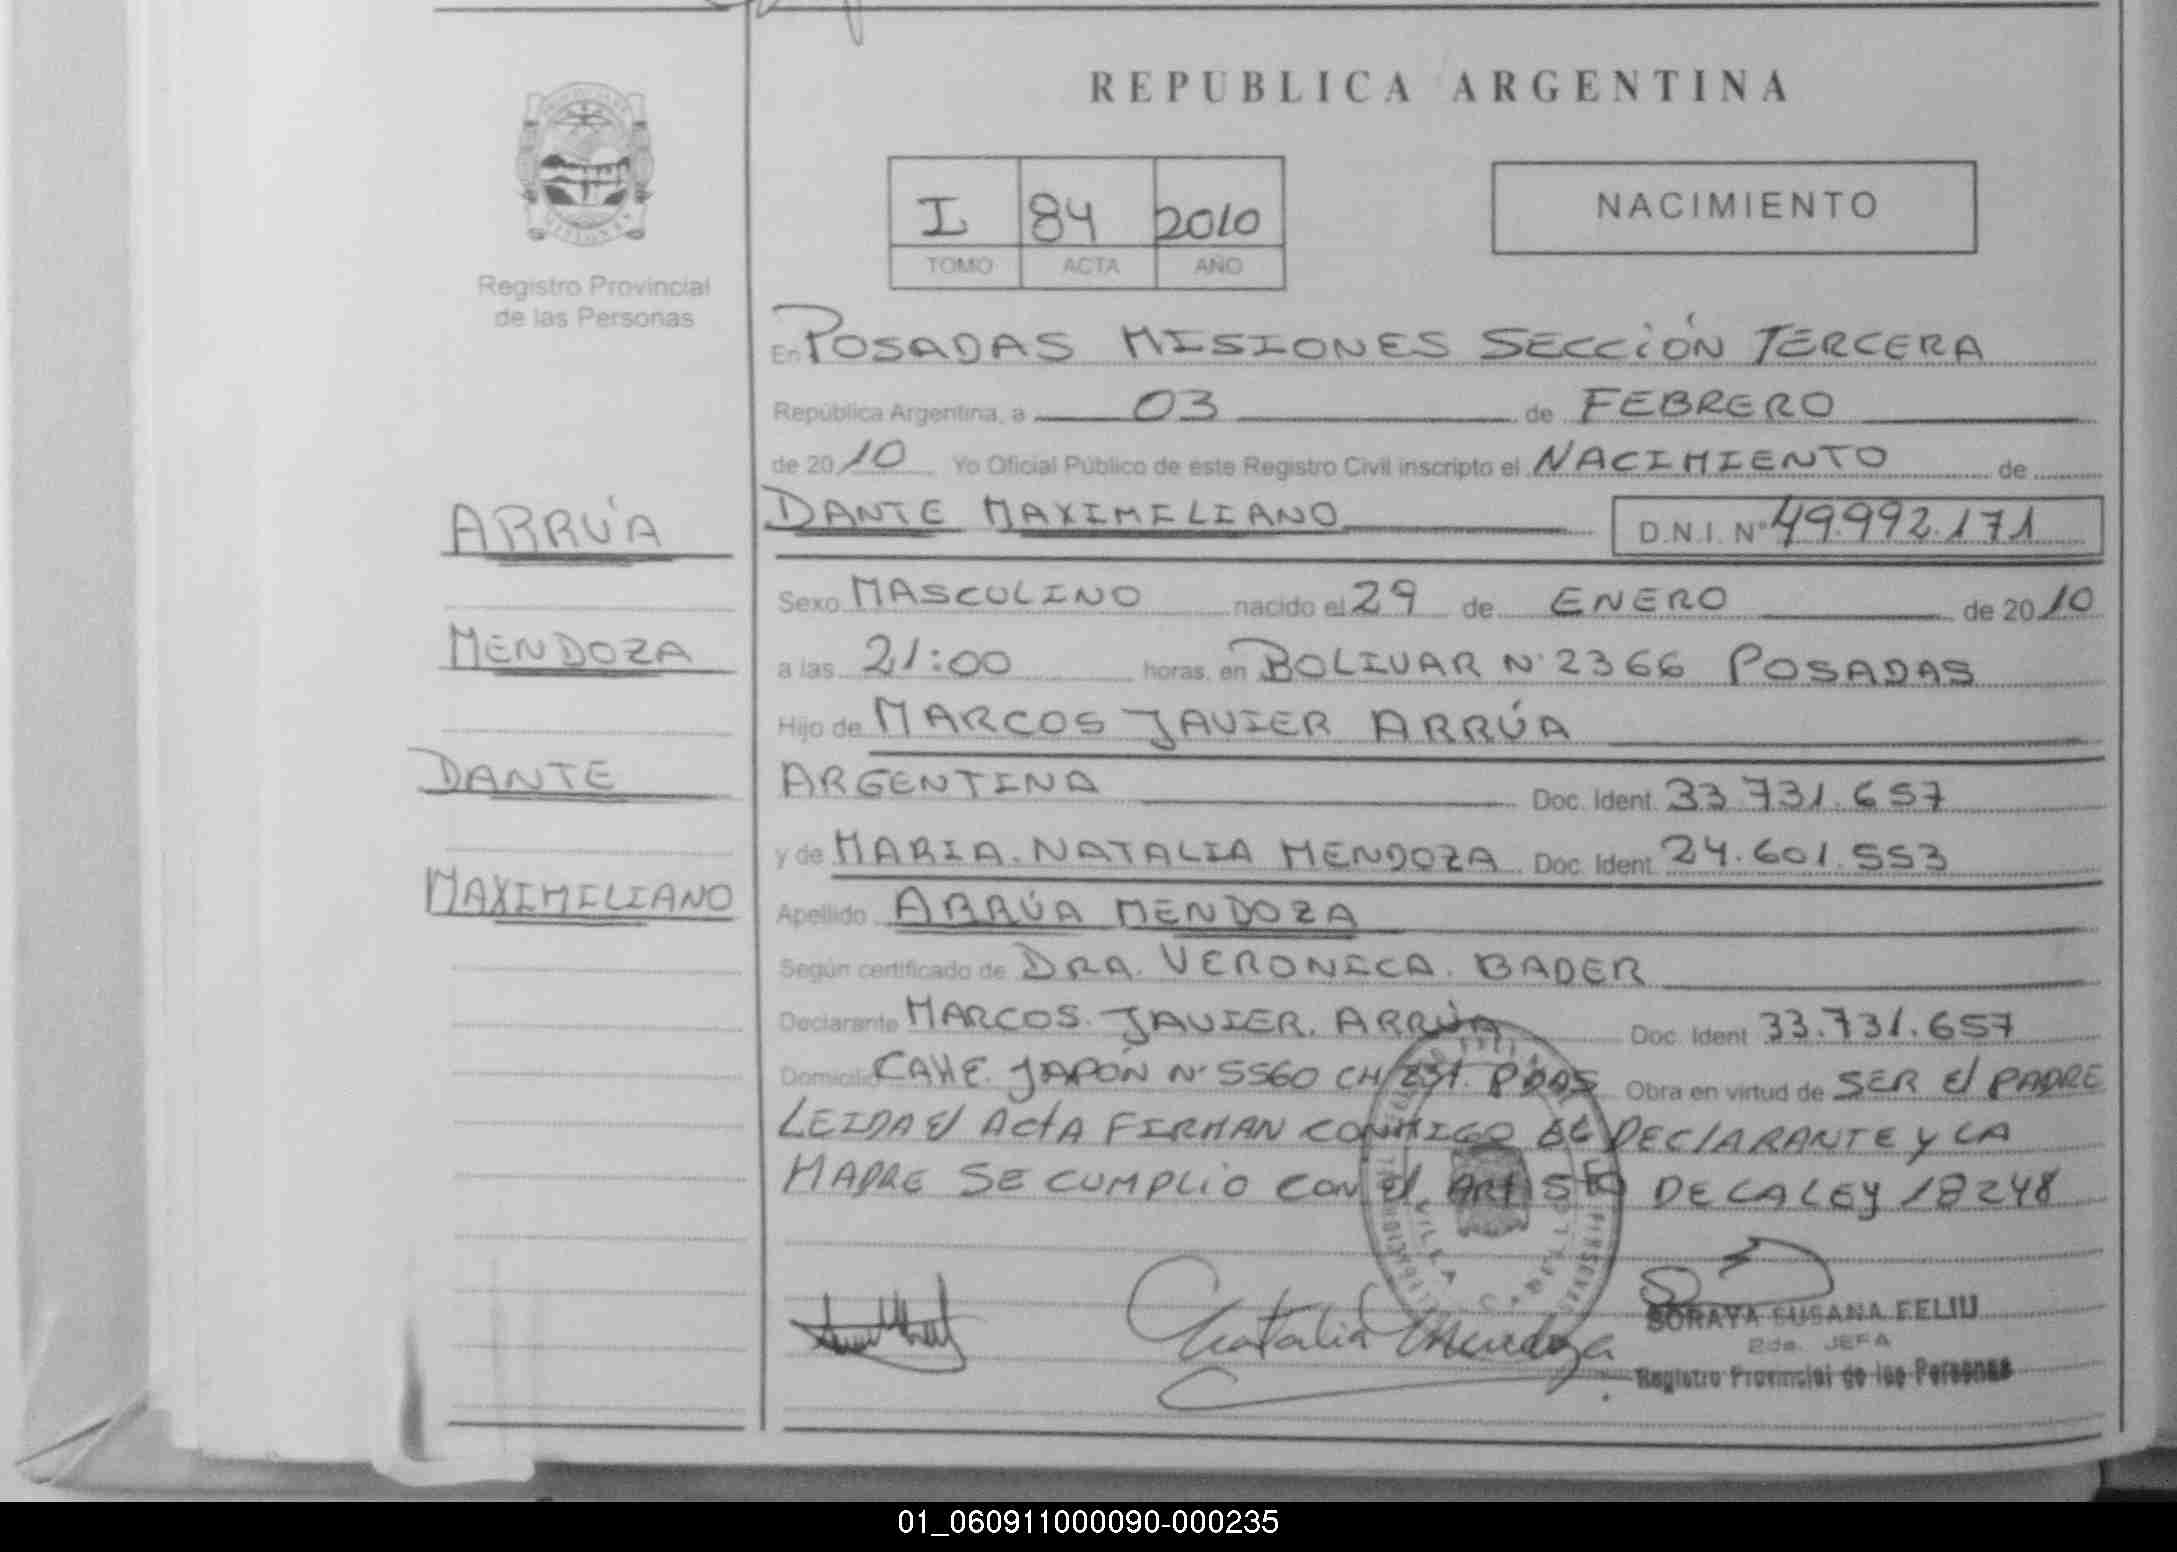 REPUBLICA ARGENTINA
I 84 2010
TOMO ACTA AÑO
NACIMIENTO
Registro Provincial
de las Personas
ARRÚA
MENDOZA
DANTE
MAXIMILIANO
En POSADAS MISIONES SECCIÓN TERCERA
República Argentina, a 03 de FEBRERO
de 2010 Yo Oficial Público de este Registro Civil inscripto el NACIMIENTO de
DANTE MAXIMILIANO D.N.I. Nº 49.992.171
Sexo MASCULINO nacido el 29 de ENERO de 2010
a las 21:00 horas, en BOLIVAR Nº 2366 POSADAS
Hijo de MARCOS JAVIER ARRÚA
ARGENTINA Doc. Ident. 33.731.657
y de MARIA NATALIA MENDOZA Doc. Ident. 24.601.553
Apellido ARRÚA MENDOZA
Según certificado de DRA. VERONICA BADER
Declarante MARCOS JAVIER ARRÚA Doc. Ident. 33.731.657
Domicilio CALLE JAPÓN Nº 5560 CH 231. PDAS Obra en virtud de SER El PADRE
LEIDA El ActA FIRMAN CONMIGO EL DEClARANTE y LA
MADRE SE CUMPLIO CON El ART 5to DE LA LEY 18248
Natalia Mendoza
SORAYA SUSANA FELIU
2da. JEFA
Registro Provincial de las Personas
01_060911000090-000235